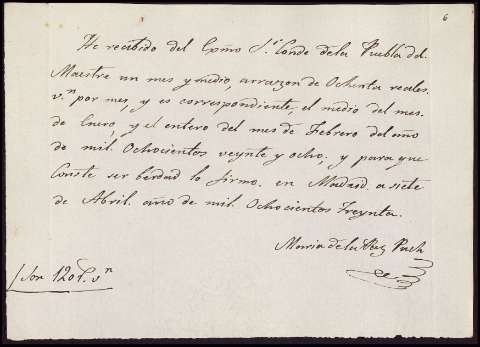 6
He recibido del Exmo Sr. Conde de la Puebla del
Maestre un mes y medio, arrazon de Ochenta reales
v.n por mes, y es correspondiente, el medio del mes
de Enero, y el entero del mes de Febrero del año
de mil Ochocientos veynte y ocho, y para que
Conste ser berdad lo firmo en Madrid a siete
de Abril año de mil Ochocientos treynta.
Maria de la
Son 120 r. v.n